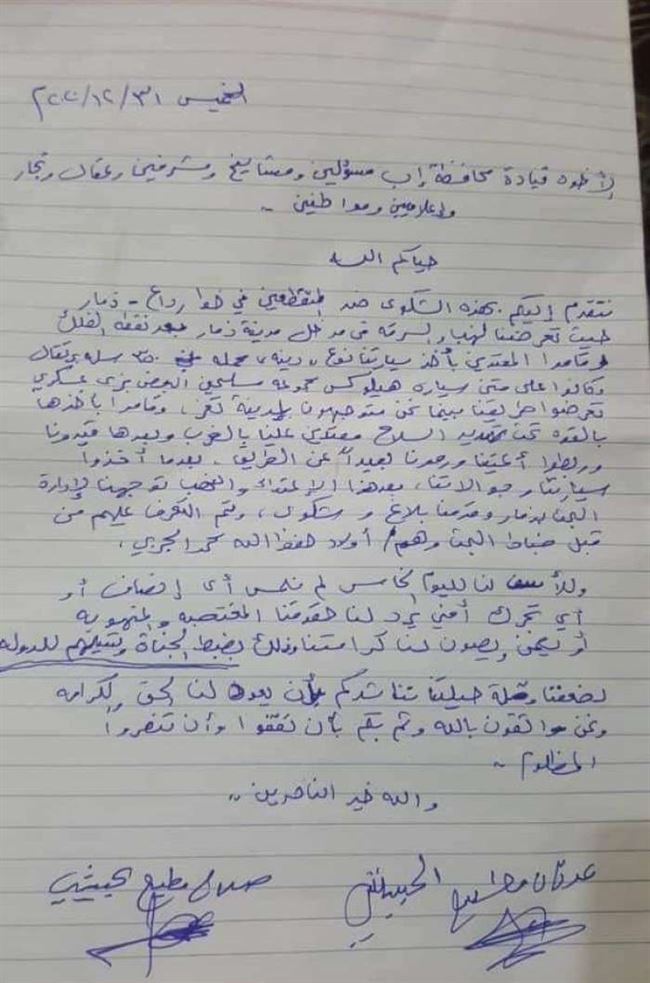 الخميس ٣١/١٢/٢٠٢٠م
الأخوه قيادة محافظة إب مسؤلين ومشايخ ومشرفين وعقال وتجار
وإعلاميين ومواطنين -
حياكم الله
نتقدم إليكم بهذه الشكوى ضد المتقطعين في خط رداع - ذمار
حيث تعرضنا لنهب والسرقه في مدخل مدينة ذمار بعد نقطة الفلك
وقاموا المعتدين بأخذ سيارتنا نوع دينه، محمله ٣٥٠ سله برتقال
وكانوا على متن سياره هيلوكس مجموعه مسلحين البعض بزي عسكري
تعرضوا طريقنا بينما نحن متوجهون لمدينة تعز، وقاموا باخذها
بالقوه تحت تهديد السلاح معتدين علينا بالضرب وبعدها قيدونا
وربطوا أعيننا ورمونا بعيداً عن الطريق. بعدما أخذوا
سيارتنا وجوالاتنا، بعد هذا الإعتداء والنهب توجهنا لإدارة
البحث بذمار وقدمنا بلاغ وشكوى، وتم التعرف عليهم من
قبل ضباط البحث وهم/ أولاد حفظ الله محمد الجربي.
وللأسف لنا لليوم الخامس لم نلمس أي إنصاف أو
أي تحرك أمني يرد لنا حقوقنا المغتصبه والمنهوبه
أو يحمي ويصون لنا كرامتنا وذلك بضبط الجناة وتسليمهم للدوله
لضعفنا وقلة حيلتنا نناشدكم بأن يعود لنا الحق والكرامه
ونحن واثقون بالله وثم بكم بأن تقفوا وأن تنصروا
المظلوم -
والله خير الناصرين ..
عدنان الحبيشي
صلاح مطيع الحبيشي